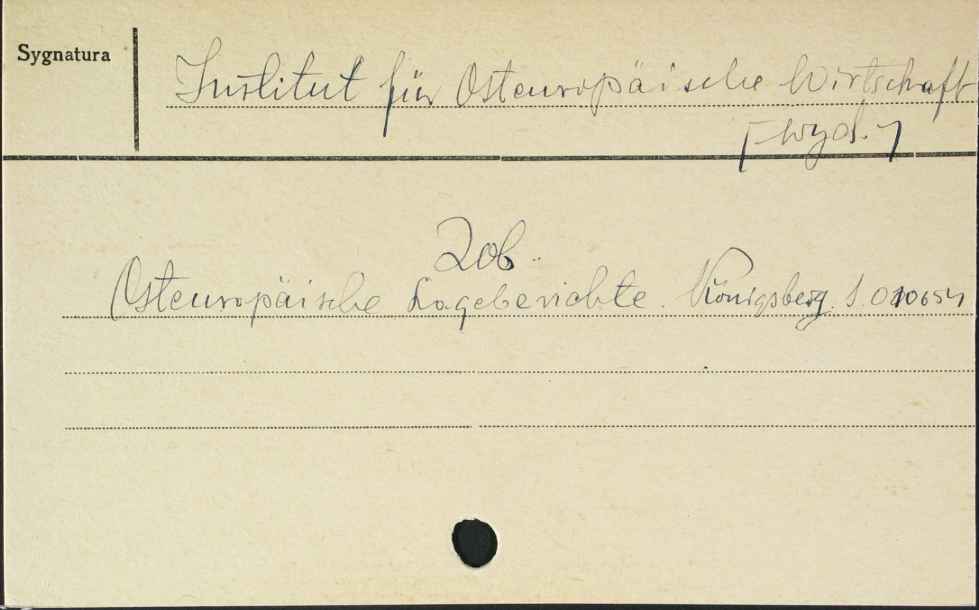 Sygnatura
Institut für Osteuropäische Wirtschaft
[wyd.]
Zob.
Osteuropäische Lageberichte. Königsberg. S.